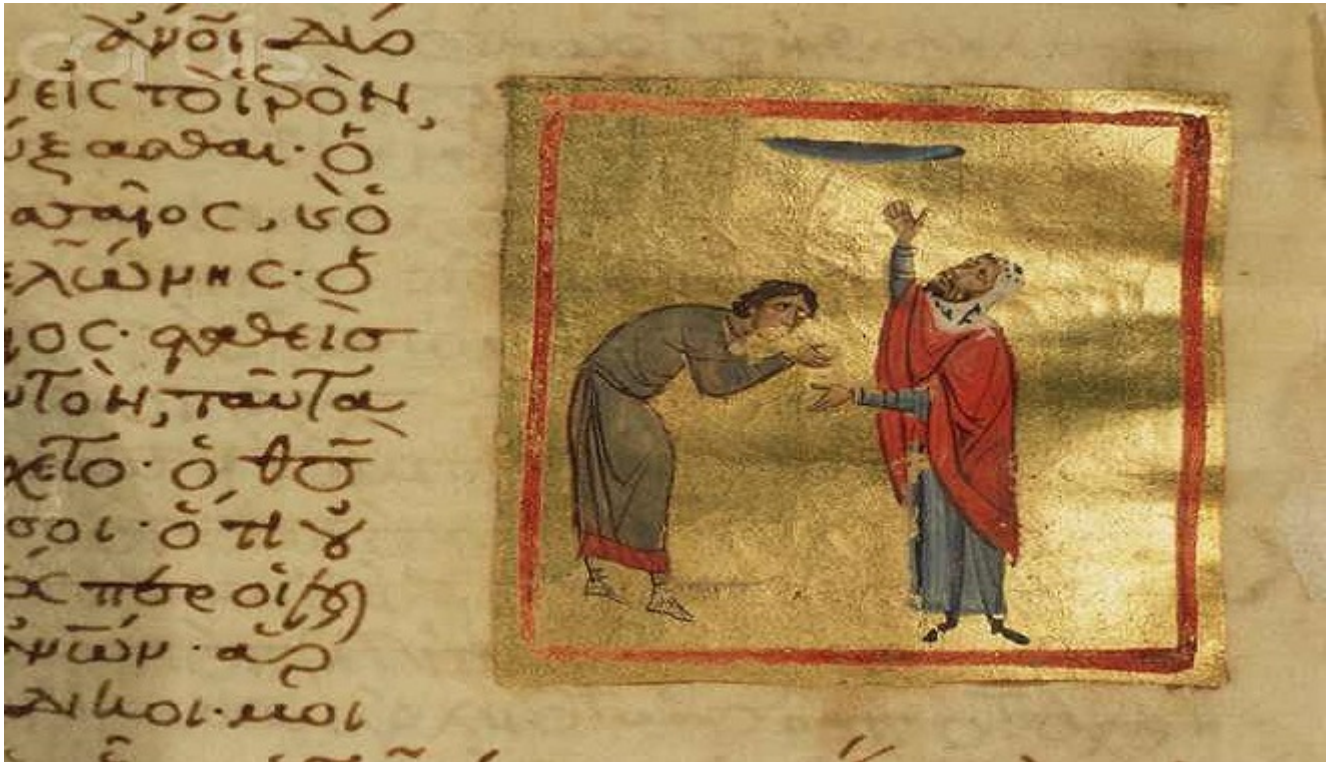 corbis
ἄνοι δύο
εἰς τὸ ἱρὸν,
ύξασθαι· ὁ
σαῖος, καὶ ὁ
ελώνης· ὁ
ιος· σταθεὶσ
υτὸν, ταῦτα
χετο· ὁ θσ
σοι· ὅτι οὐ
περ οἱ
ἀνων· ἅρ
δικοι· μοι